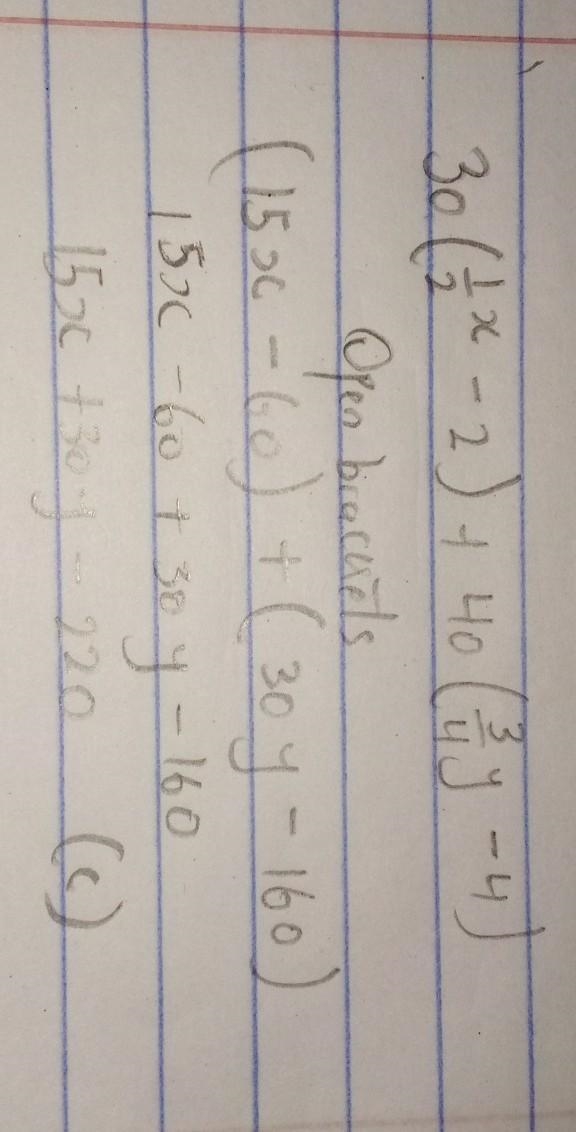 30(1/2 x - 2) + 40(3/4 y - 4)
Open brackets
(15x - 60) + (30y - 160)
15x - 60 + 30y - 160
15x + 30y - 220 (c)